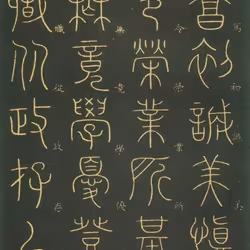 篤初誠美慎
令榮業所基
無竟學優登
職從政存以